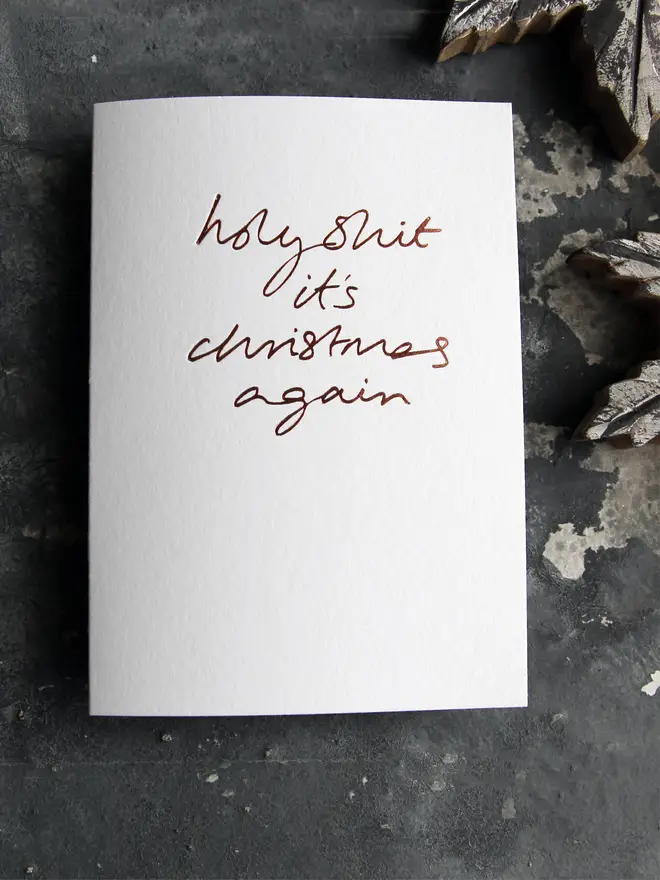 holy shit
it's
christmas
again